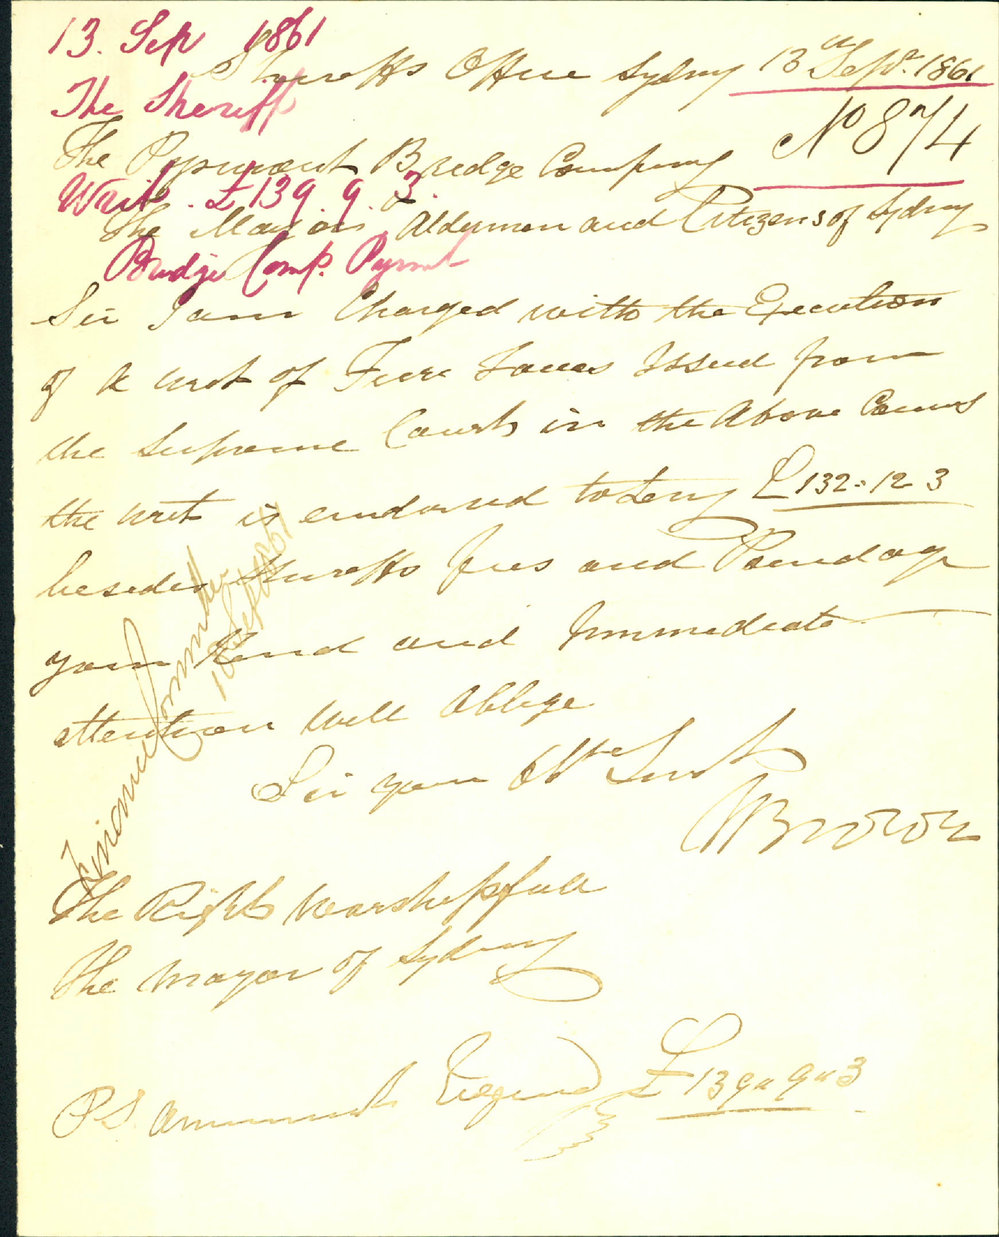 13. Sep 1861
Sheriffs Office Sydney 13th Sepr. 1861
The Sheriff
No 874
The Pyrmont Bridge Company
Writ. £139. 9. 3.
The Mayor Aldermen and Citizens of Sydney
Bridge Comp. Pyrmt
Sir I am Charged with the Execution
of a writ of Fiere Facias Issued from
the Supreme Court in the Above Cause
the writ is endorsed to Levy £132-12 3
besides Sheriffs fees and Poundage
your Kind and Immediate
attention will Oblige
Sir your Obt Servt
WBrown
Finance Committee
16 Sept 1861
The Right Worshipfull
The Mayor of Sydney
P.S. Ammount Required £139"9"3